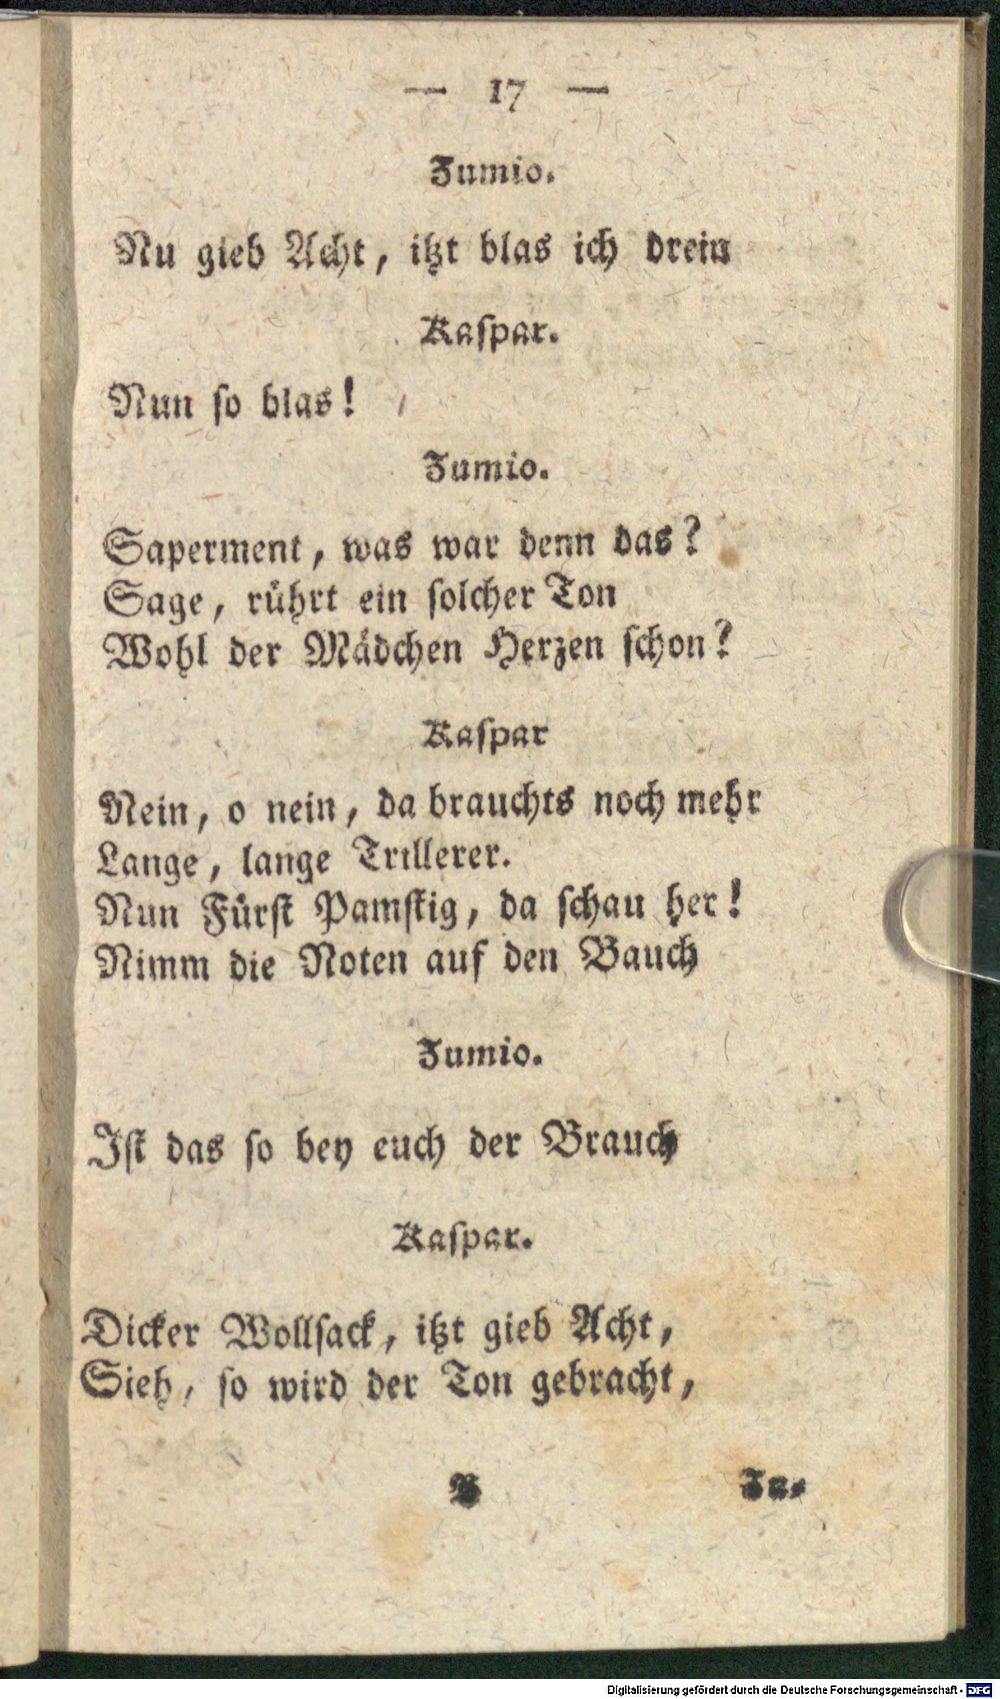 — 17 —
Zumio.
Nu gieb Acht, itzt blas ich drein
Kaſpar.
Nun ſo blas!
Zumio.
Saperment, was war denn das?
Sage, rührt ein ſolcher Ton
Wohl der Mädchen Herzen ſchon?
Kaſpar
Nein, o nein, da brauchts noch mehr
Lange, lange Trillerer.
Nun Fürſt Pamſtig, da ſchau her!
Nimm die Noten auf den Bauch
Zumio.
Iſt das ſo bey euch der Brauch
Kaſpar.
Dicker Wollſack, itzt gieb Acht,
Sieh, ſo wird der Ton gebracht,
B Zu-
Digitalisierung gefördert durch die Deutsche Forschungsgemeinschaft - DFG